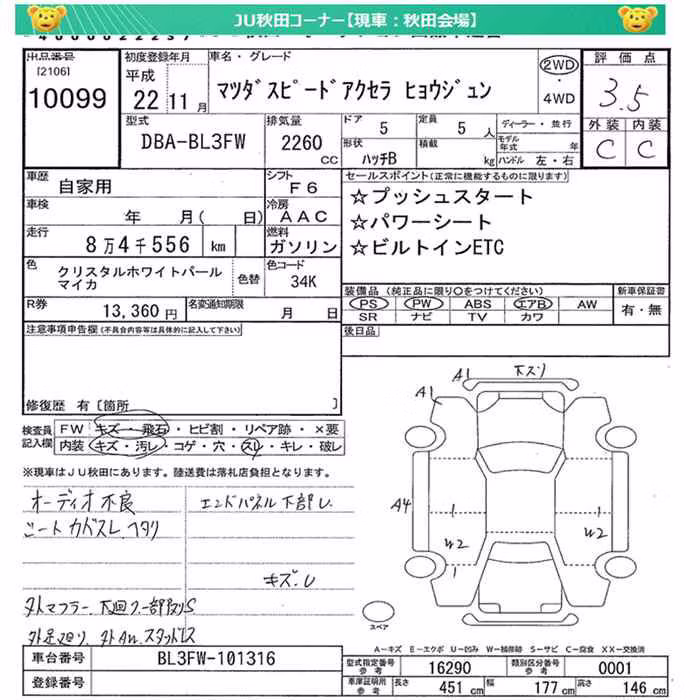 JU秋田コーナー【現車：秋田会場】
出品番号
[2106]
10099
初度登録年月
平成
22年11月
車名・グレード
マツダスピードアクセラ ヒョウジュン
2WD
・
4WD
評価点
3.5
外装 内装
C C
型式
DBA-BL3FW
排気量
2260
cc
ドア 5
定員 5 人
形状 ハッチB
積載 kg
ディーラー・並行
モデル年式 年
ハンドル 左・右
車歴
自家用
シフト
F6
車検
年 月( 日)
冷房
AAC
走行
8万4千556 km
燃料
ガソリン
色
クリスタルホワイトパール
マイカ
色替
色コード
34K
R券
13,360円
名変通知期限
月 日
セールスポイント(正常に機能するものに限ります)
☆プッシュスタート
☆パワーシート
☆ビルトインETC
装備品(純正品に限り○をつけてください)
PS PW ABS エアB AW
SR ナビ TV カワ
新車保証書
有・無
後日品
注意事項申告欄(不具合内容等は具体的に記入して下さい)
修復歴 有〔箇所 〕
検査員
記入欄
FW キズ・飛石・ヒビ割・リペア跡・×要
内装 キズ・汚レ・コゲ・穴・スリ・キレ・破レ
※現車はJU秋田にあります。陸送費は落札店負担となります。
オーディオ不良
シートカドスレ.ヘタリ
エンドパネル下部U.
キズ.U
外マフラー.下廻り一部サS
外足廻り.外AW.スタッドレス
A1 下スリ
A1
A4
W2
W2
スペア
A－キズ E－エクボ U－凹み W－補修跡 S－サビ C－腐食 XX－交換済
車台番号
BL3FW-101316
登録番号
型式指定番号
参考
16290
類別区分番号
参考
0001
車庫証明用
参考
長さ 451 cm
幅 177 cm
高さ 146 cm